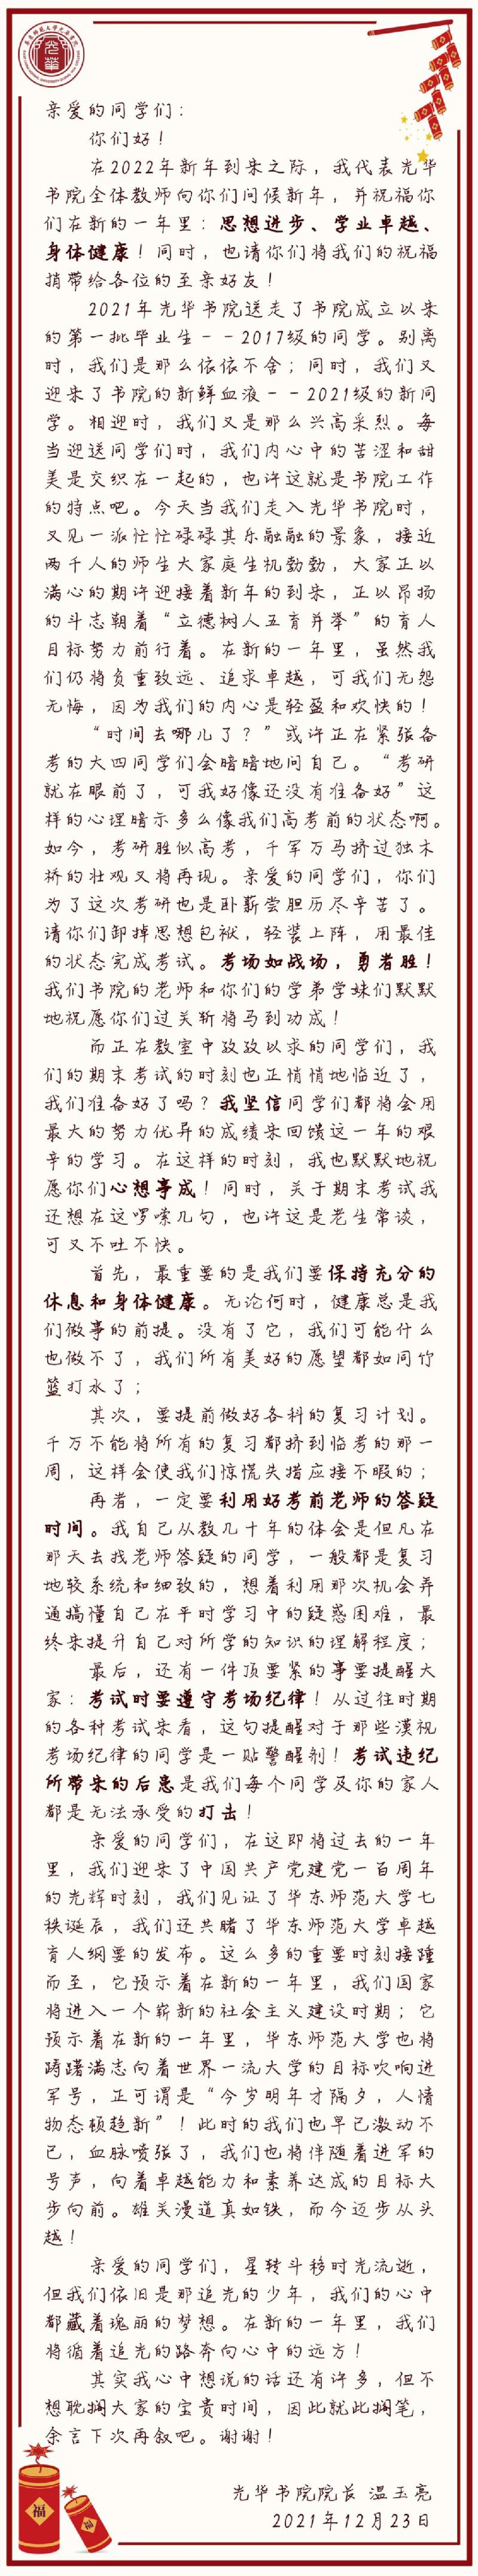 光華
亲爱的同学们：
你们好！
在2022年新年到来之际，我代表光华
书院全体教师向你们问候新年，并祝福你
们在新的一年里：思想进步、学业卓越、
身体健康！同时，也请你们将我们的祝福
捎带给各位的至亲好友！
2021年光华书院送走了书院成立以来
的第一批毕业生--2017级的同学。别离
时，我们是那么依依不舍；同时，我们又
迎来了书院的新鲜血液--2021级的新同
学。相迎时，我们又是那么兴高采烈。每
当迎送同学们时，我们内心中的苦涩和甜
美是交织在一起的，也许这就是书院工作
的特点吧。今天当我们走入光华书院时，
又见一派忙忙碌碌其乐融融的景象，接近
两千人的师生大家庭生机勃勃，大家正以
满心的期许迎接着新年的到来，正以昂扬
的斗志朝着“立德树人五育并举”的育人
目标努力前行着。在新的一年里，虽然我
们仍将负重致远、追求卓越，可我们无怨
无悔，因为我们的内心是轻盈和欢快的！
“时间去哪儿了？”或许正在紧张备
考的大四同学们会暗暗地问自己。“考研
就在眼前了，可我好像还没有准备好”这
样的心理暗示多么像我们高考前的状态啊。
如今，考研胜似高考，千军万马挤过独木
桥的壮观又将再现。亲爱的同学们，你们
为了这次考研也是卧薪尝胆历尽辛苦了。
请你们卸掉思想包袱，轻装上阵，用最佳
的状态完成考试。考场如战场，勇者胜！
我们书院的老师和你们的学弟学妹们默默
地祝愿你们过关斩将马到功成！
而正在教室中孜孜以求的同学们，我
们的期末考试的时刻也正悄悄地临近了，
我们准备好了吗？我坚信同学们都将会用
最大的努力优异的成绩来回馈这一年的艰
辛的学习。在这样的时刻，我也默默地祝
愿你们心想事成！同时，关于期末考试我
还想在这啰嗦几句，也许这是老生常谈，
可又不吐不快。
首先，最重要的是我们要保持充分的
休息和身体健康。无论何时，健康总是我
们做事的前提。没有了它，我们可能什么
也做不了，我们所有美好的愿望都如同竹
篮打水了；
其次，要提前做好各科的复习计划。
千万不能将所有的复习都挤到临考的那一
周，这样会使我们惊慌失措应接不暇的；
再者，一定要利用好考前老师的答疑
时间。我自己从教几十年的体会是但凡在
那天去找老师答疑的同学，一般都是复习
地较系统和细致的，想着利用那次机会弄
通搞懂自己在平时学习中的疑惑困难，最
终来提升自己对所学的知识的理解程度；
最后，还有一件顶要紧的事要提醒大
家：考试时要遵守考场纪律！从过往时期
的各种考试来看，这句提醒对于那些漠视
考场纪律的同学是一贴警醒剂！考试违纪
所带来的后患是我们每个同学及你的家人
都是无法承受的打击！
亲爱的同学们，在这即将过去的一年
里，我们迎来了中国共产党建党一百周年
的光辉时刻，我们见证了华东师范大学七
秩诞辰，我们还共睹了华东师范大学卓越
育人纲要的发布。这么多的重要时刻接踵
而至，它预示着在新的一年里，我们国家
将进入一个崭新的社会主义建设时期；它
预示着在新的一年里，华东师范大学也将
踌躇满志向着世界一流大学的目标吹响进
军号，正可谓是“今岁明年才隔夕，人情
物态顿趋新”！此时的我们也早已激动不
已，血脉喷张了，我们也将伴随着进军的
号声，向着卓越能力和素养达成的目标大
步向前。雄关漫道真如铁，而今迈步从头
越！
亲爱的同学们，星转斗移时光流逝，
但我们依旧是那追光的少年，我们的心中
都藏着瑰丽的梦想。在新的一年里，我们
将循着追光的路奔向心中的远方！
其实我心中想说的话还有许多，但不
想耽搁大家的宝贵时间，因此就此搁笔，
余言下次再叙吧。谢谢！
光华书院院长 温玉亮
2021年12月23日
福